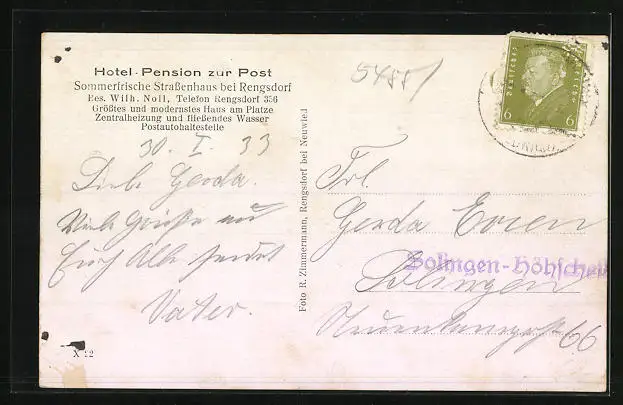 Hotel-Pension zur Post
Sommerfrische Straßenhaus bei Rengsdorf
Bes. Wilh. Noll, Telefon Rengsdorf 356
Größtes und modernstes Haus am Platze
Zentralheizung und fließendes Wasser
Postautohaltestelle
30. I. 33
Lieb. Gerda.
Viele Grüße an
Euch Alle sendet
Vater.
X 22
Foto R. Zimmermann, Rengsdorf bei Neuwied
5488
Deutsches Reich
6 6
Frl.
Gerda Evien
Solingen-Höhscheid
Solingen
66